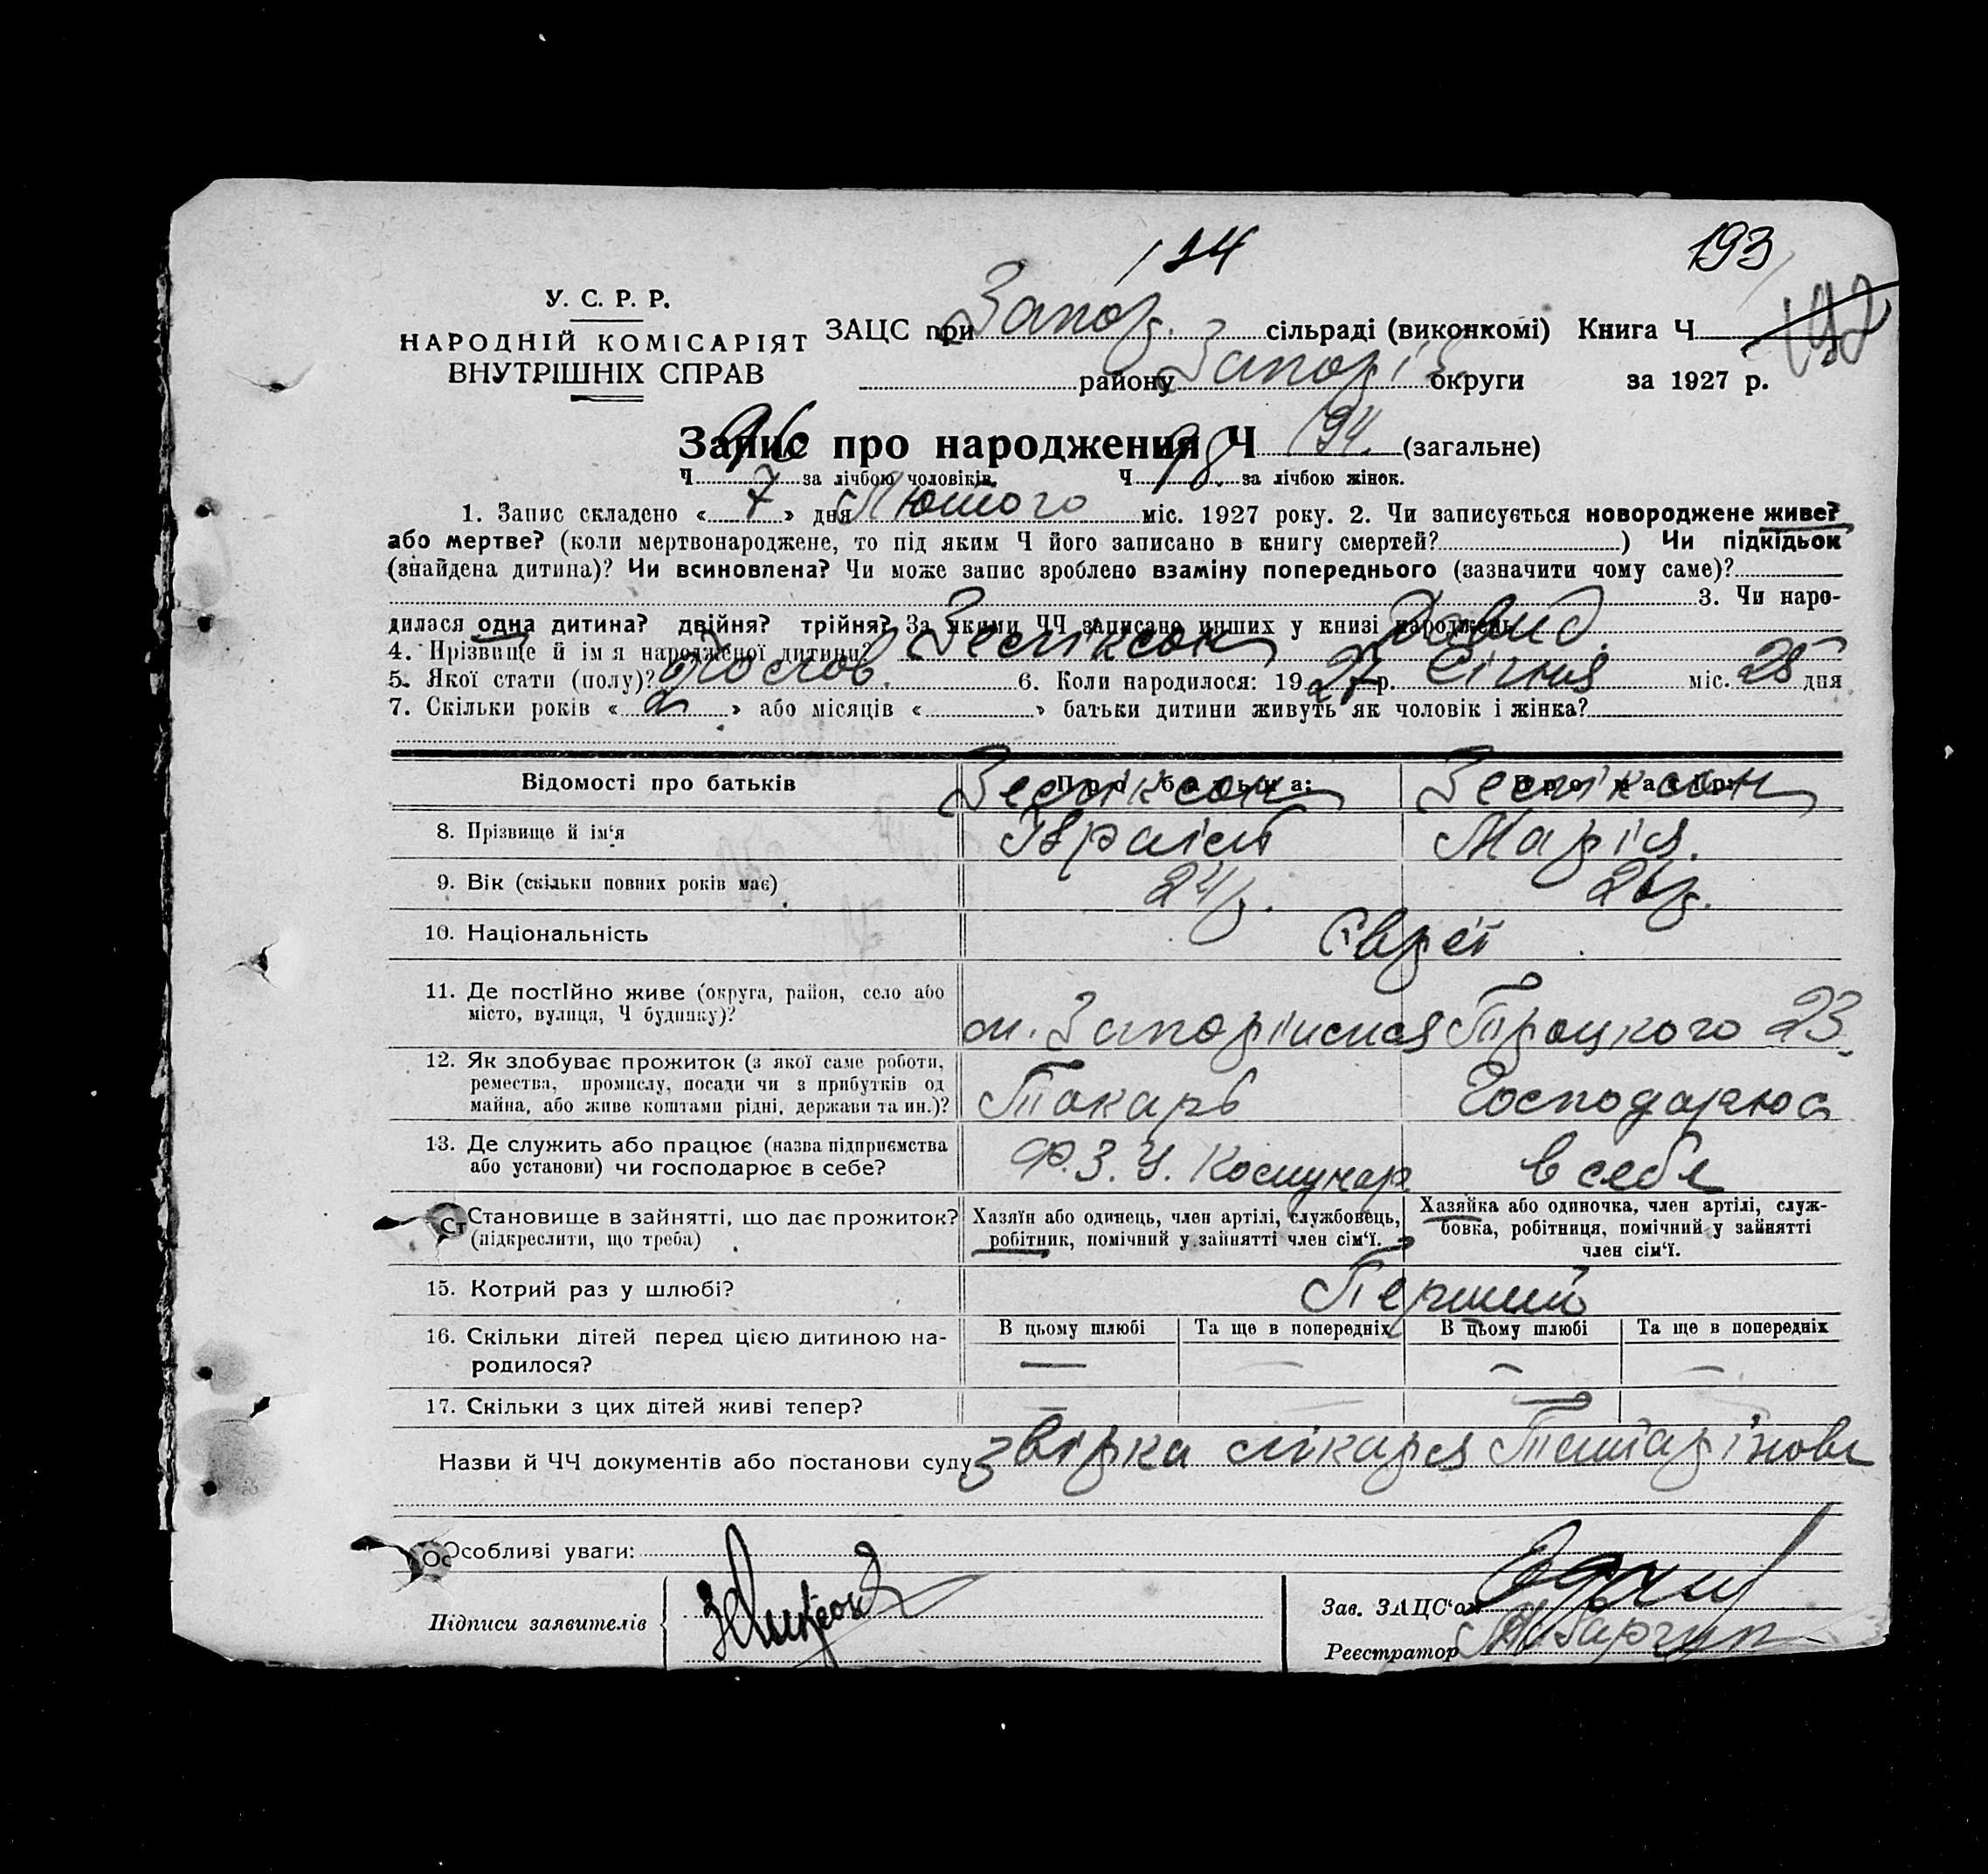 194
193
У. С. Р. Р.
НАРОДНІЙ КОМІСАРІЯТ
ВНУТРІШНІХ СПРАВ
ЗАЦС при Запор. сільраді (виконкомі) Книга Ч 192
району Запоріз. округи за 1927 р.
Запис про народження Ч 194. (загальне)
Ч 96 за лічбою чоловіків. Ч 98. за лічбою жінок.
1. Запис складено « 7 » дня Лютого міс. 1927 року. 2. Чи записується новороджене живе?
або мертве? (коли мертвонароджене, то під яким Ч його записано в книгу смертей? ) Чи підкідьок
(знайдена дитина)? Чи всиновлена? Чи може запис зроблено взаміну попереднього (зазначити чому саме)?
3. Чи наро-
дилася одна дитина? двійня? трійня? За якими ЧЧ записано инших у книзі народжень
4. Прізвище й ім я народженої дитини? Давид.
5. Якої стати (полу)? 6. Коли народилося: 19 27 р. Січня міс. 25 дня
7. Скільки років « 2 » або місяців « » батьки дитини живуть як чоловік і жінка?
Відомості про батьків Про батька: Про матір:
8. Прізвище й ім‘я Марія.
9. Вік (скільки повних років має) 24 р. 26 р.
10. Національність Євреї
11. Де постійно живе (округа, район, село або
місто, вулиця, Ч будинку)?
м. Троцкого 23.
12. Як здобуває прожиток (з якої саме роботи,
ремества, промислу, посади чи з прибутків од
майна, або живе коштами рідні, держави та ин.)?
Токарь Господарює
13. Де служить або працює (назва підприємства
або установи) чи господарює в себе?
Ф.З.У. Комунар в себе
Становище в зайнятті, що дає прожиток?
(підкреслити, що треба)
Хазяїн або одинець, член артілі, службовець,
робітник, помічний у зайнятті член сім‘ї.
Хазяйка або одиночка, член артілі, служ-
бовка, робітниця, помічний у зайнятті
член сім‘ї.
15. Котрий раз у шлюбі? Перший
16. Скільки дітей перед цією дитиною на-
родилося?
В цьому шлюбі Та ще в попередніх В цьому шлюбі Та ще в попередніх
— — — —
17. Скільки з цих дітей живі тепер?
Назви й ЧЧ документів або постанови суду лікаря
Особливі уваги:
Підписи заявителів
Зав. ЗАЦС‘ом
Реєстратор